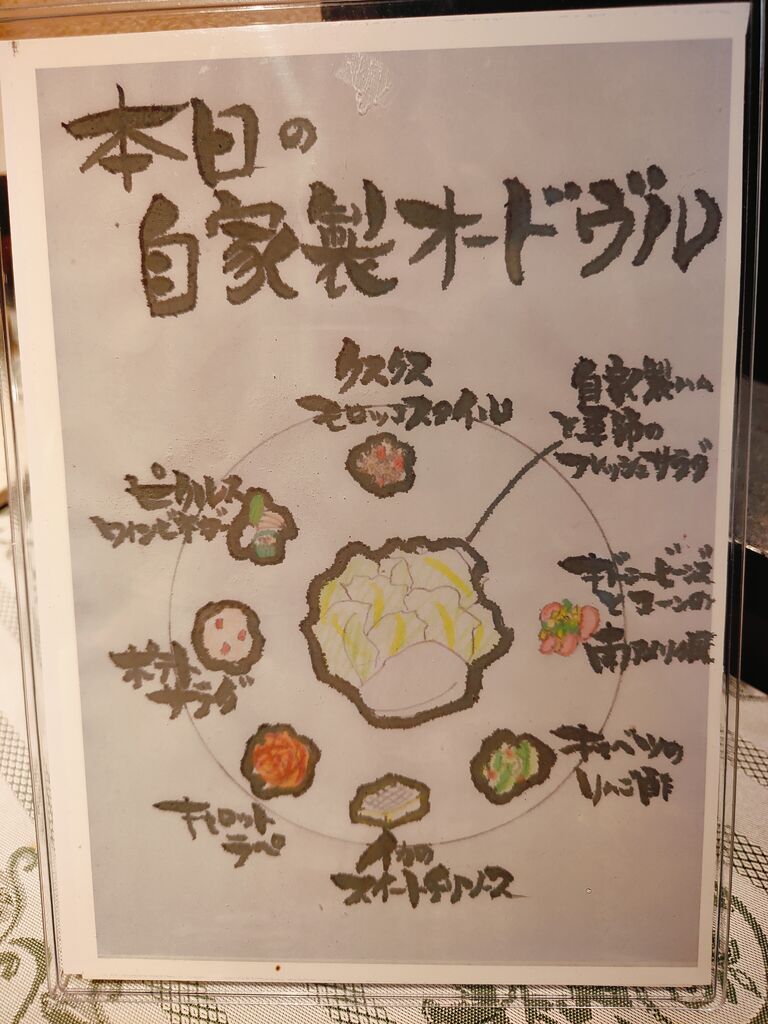 本日の
自家製オードヴル
クスクス
モロッコスタイル
自家製ハム
と季節の
フレッシュサラダ
ピクルス
ワインビネガー
キドニービーンズ
とコーンの
南アメリカ風
ポテト
サラダ
キャベツの
りんご酢
キャロット
ラペ
イカの
スイートチリソース